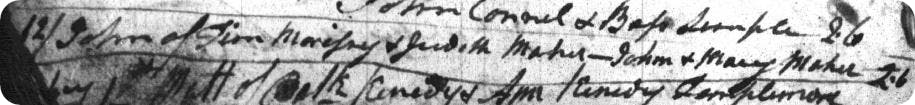 John Connel & Bess Semple 2-6
12/ John of Tim Morissy & Judith Maher - John & Mary Maher 2-6
Matt of Kenedy & Ann Kenedy Templemore